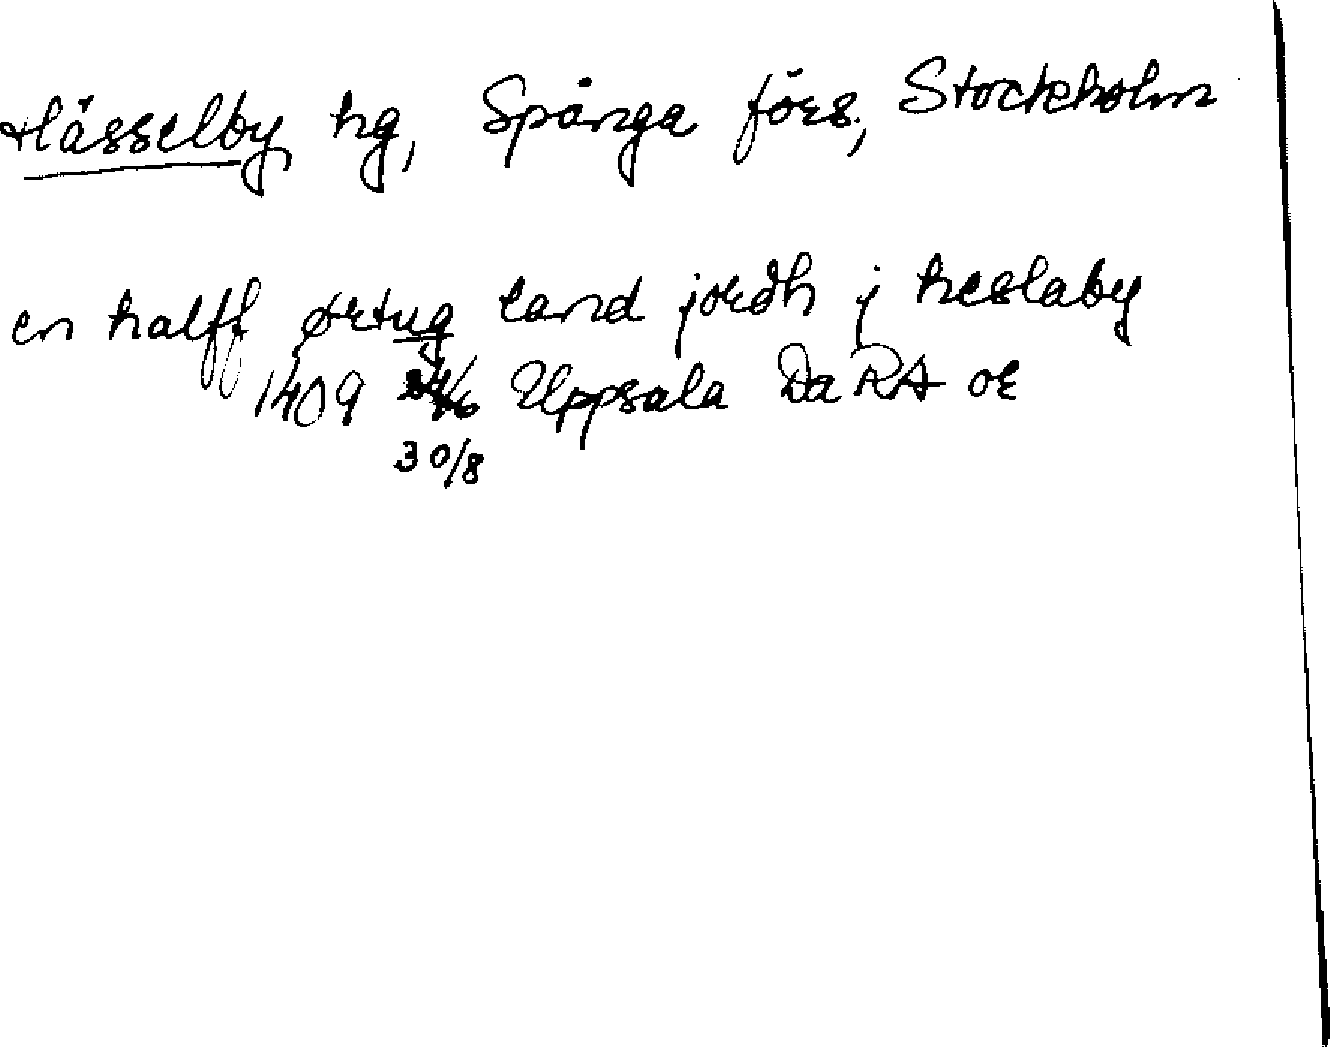 Hässelby hg, Spånga förs., Stockholm
en halff ørtug land jordh j heslaby
1409 Uppsala Da RA or
30/8